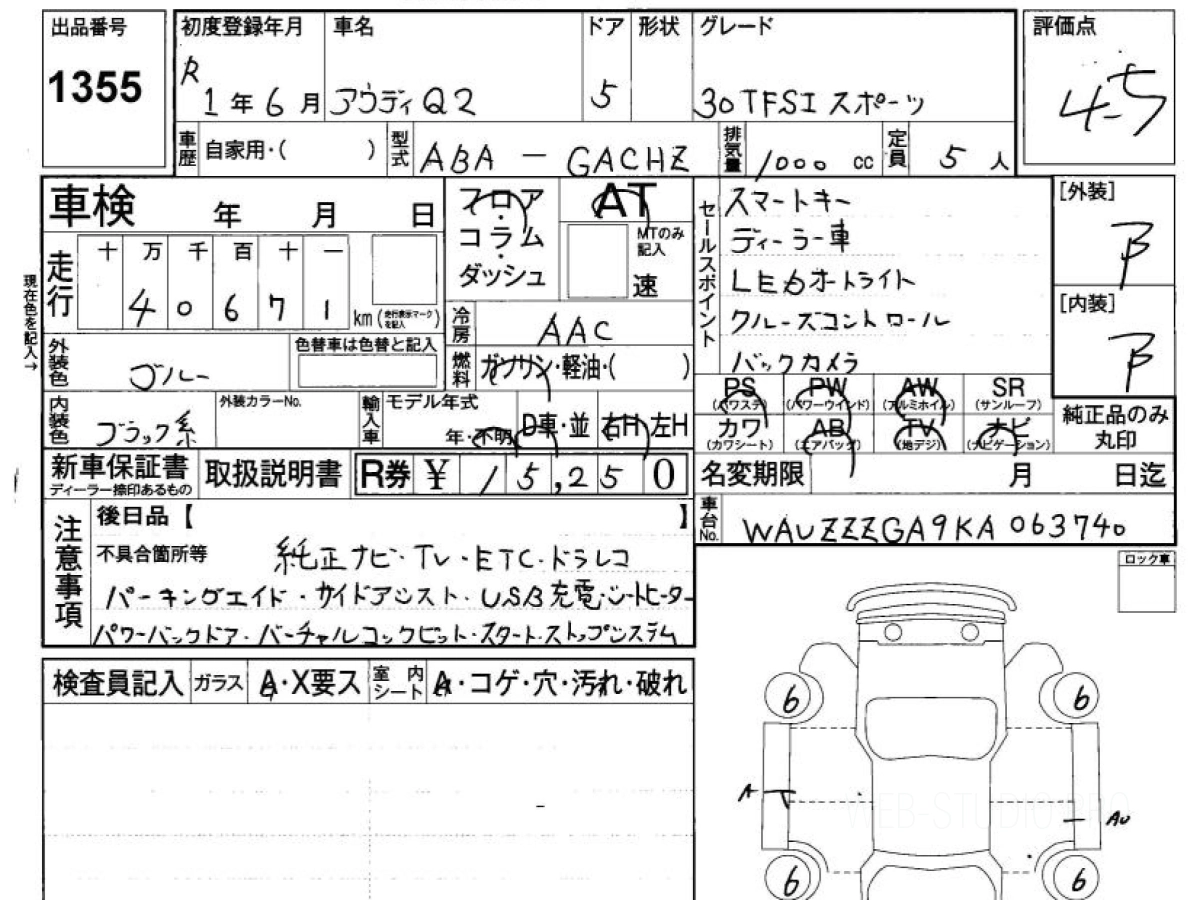 出品番号
1355
初度登録年月 車名 ドア 形状 グレード
R 1年6月 アウディQ2 5 30TFSIスポーツ
評価点
4.5
車歴 自家用・( ) 型式 ABA - GACHZ 排気量 1000 cc 定員 5 人
車検 年 月 日
フロア・コラム・ダッシュ
AT
MTのみ記入
速
セールスポイント
スマートキー
ディーラー車
LEDオートライト
クルーズコントロール
バックカメラ
[外装]
B
[内装]
B
現在色を記入→
走行 十 万 千 百 十 一
4 0 6 7 1 km (走行表示マークを記入)
冷房 AAC
外装色 ブルー 色替車は色替と記入
燃料 ガソリン・軽油・( )
PS PW AW SR
(パワステ) (パワーウインド) (アルミホイル) (サンルーフ)
カワ AB TV ナビ
(カワシート) (エアバッグ) (地デジ) (ナビゲーション)
純正品のみ
丸印
内装色 ブラック系 外装カラーNo. 輸入車 モデル年式 年・不明 D車・並 右H・左H
新車保証書 取扱説明書 R券 ¥ 15,250
ディーラー捺印あるもの
名変期限 月 日迄
車台No. WAUZZZGA9KA063740
注意事項
後日品【 】
不具合箇所等 純正ナビ・TV・ETC・ドラレコ
パーキングエイド・サイドアシスト・USB充電・シートヒーター
パワーバックドア・バーチャルコックピット・スタートストップシステム
ロック車
検査員記入 ガラス A・X要ス 室内シート A・コゲ・穴・汚れ・破れ
6 6
A
WEB-STUDIO.PRO
AU
6 6